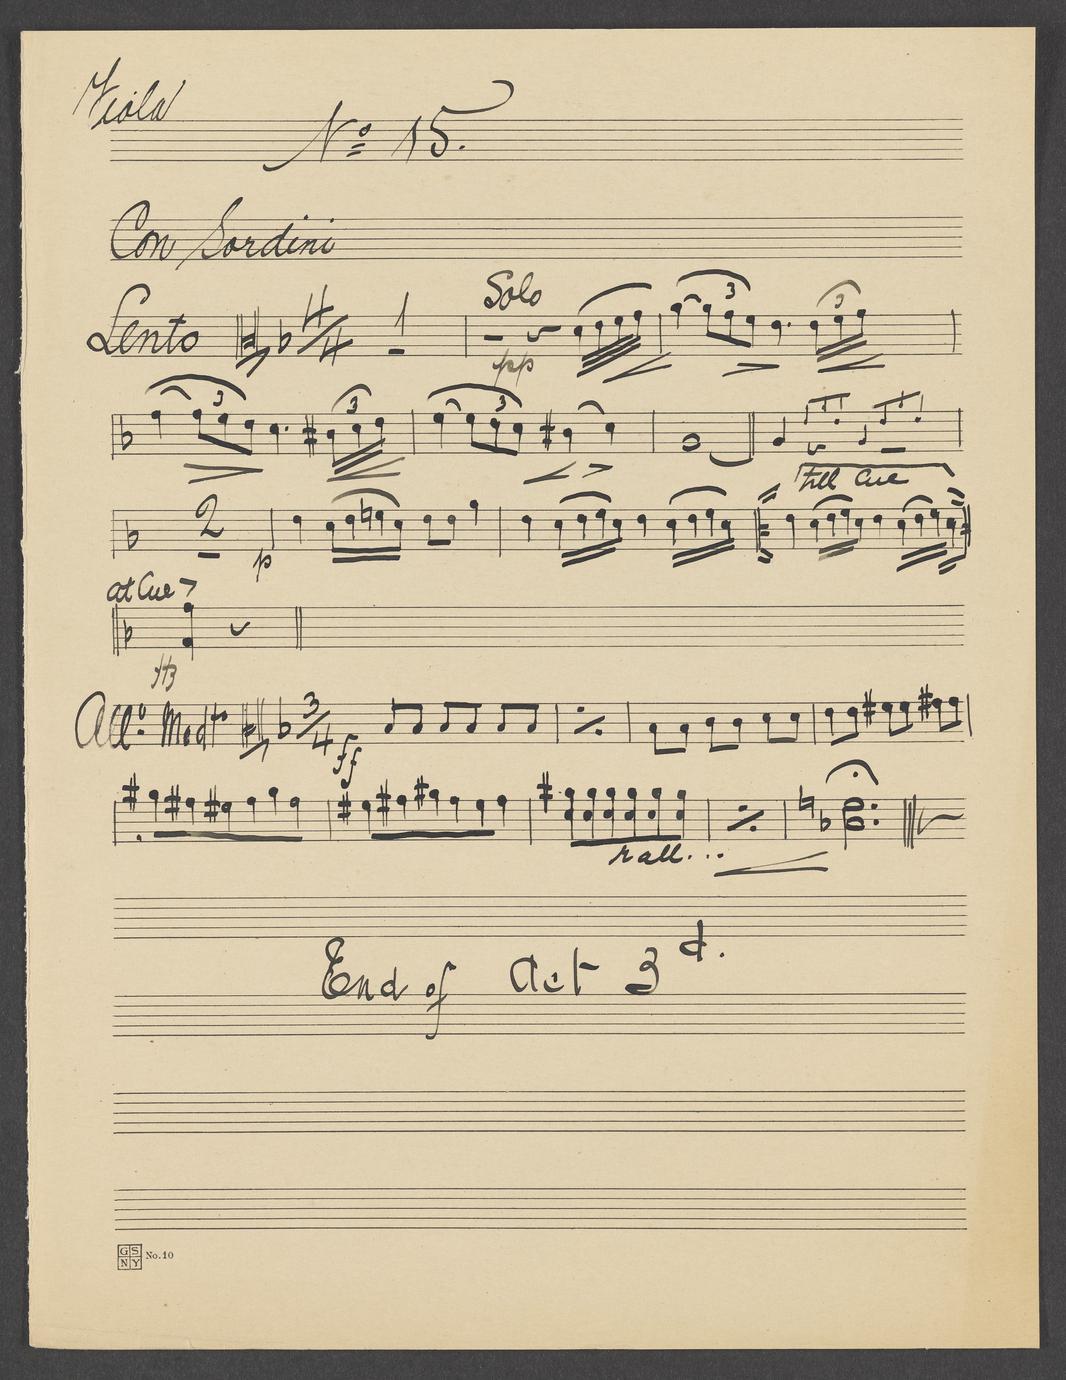 Viola
No 15.
Con Sordini
Lento 4/4 1 Solo
pp 3 3
3 3 3
Till Cue
2
p
at Cue
Allo Modto 3/4
ff
rall...
End of Act 3d.
GS
NY No. 10